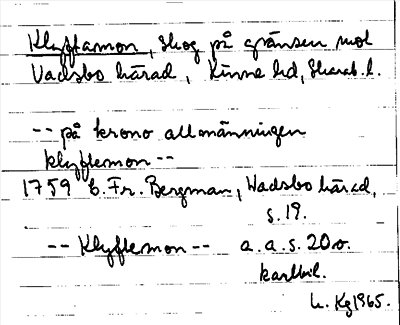 Klyftamon, skog på gränsen mot
Vadsbo härad, Kinne hd, Skarab. l.
-- på krono allmänningen
klyftemon --
1759 C. Fr. Bergman, Wadsbo härad,
s. 19.
-- Klyftemon -- a.a.s. 20 o.
kartbil.
U. Kg 1965.